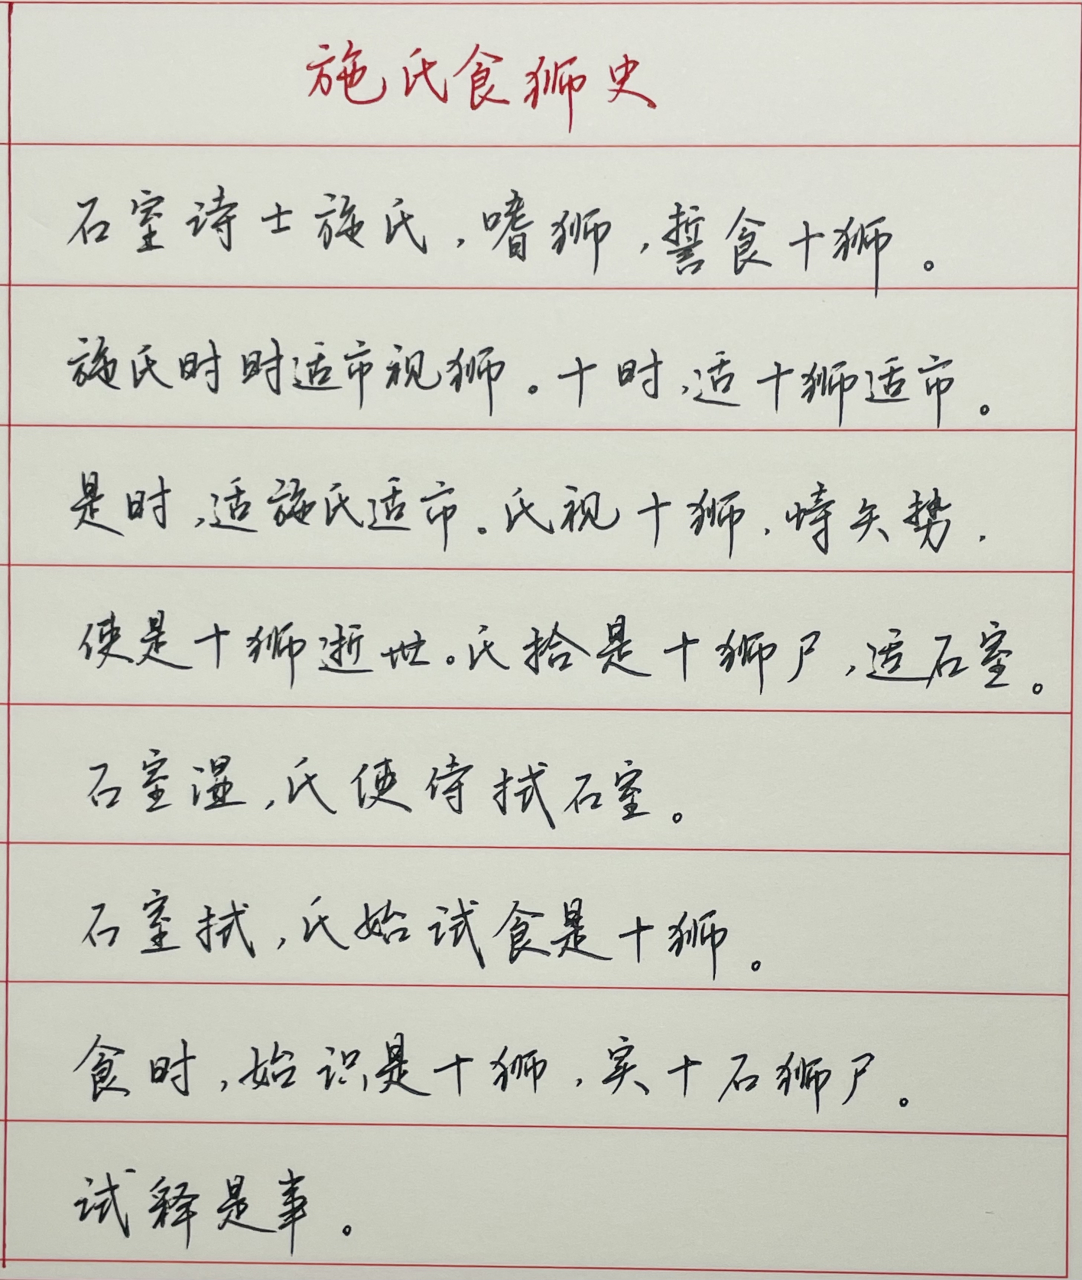 施氏食狮史
石室诗士施氏，嗜狮，誓食十狮。
施氏时时适市视狮。十时，适十狮适市。
是时，适施氏适市。氏视十狮，恃矢势，
使是十狮逝世。氏拾是十狮尸，适石室。
石室湿，氏使侍拭石室。
石室拭，氏始试食是十狮。
食时，始识是十狮，实十石狮尸。
试释是事。